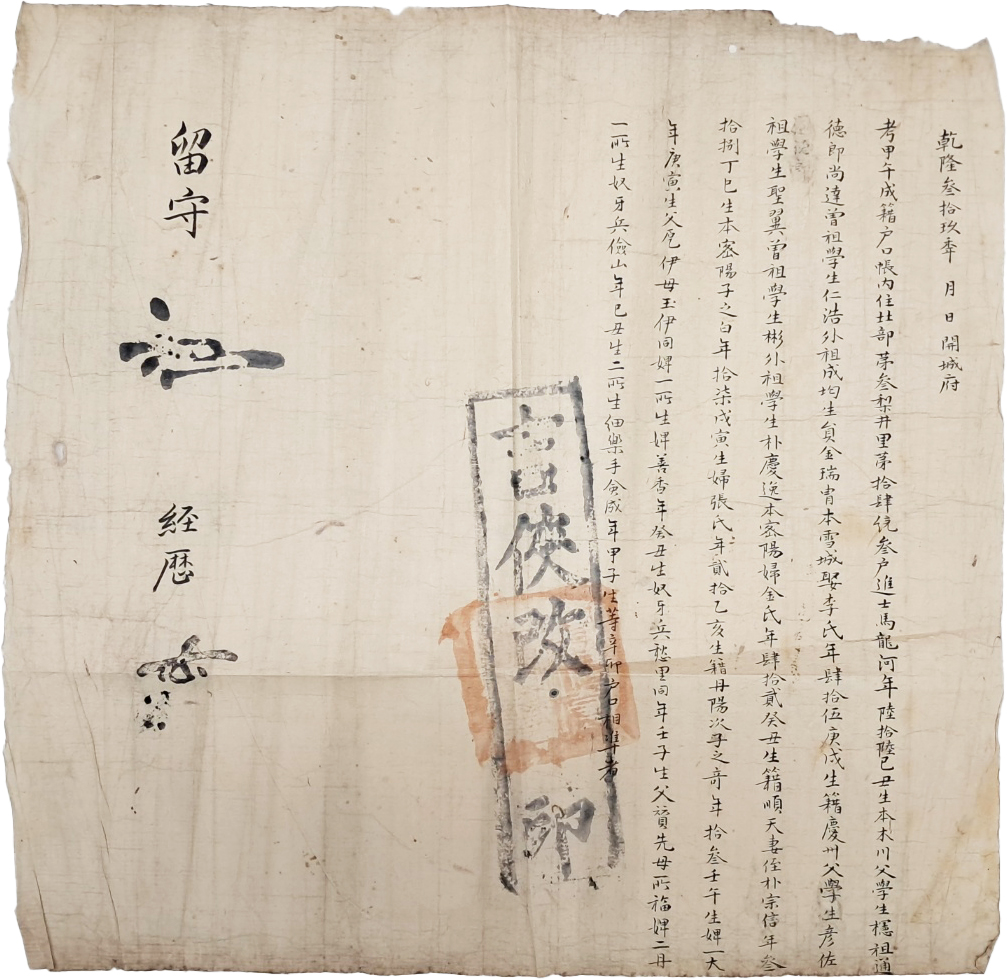 乾隆叁拾玖年 月 日 開城府
考甲午成籍戶口帳內住北部第叁梨井里第拾肆統叁戶進士馬龍河年陸拾陸己丑生本木川父學生穩祖通
德郎尚達曾祖學生仁浩外祖成均生員金瑞胄本雪城娶李氏年肆拾伍庚戌生籍慶州父學生彥佐
祖學生聖翼曾祖學生彬外祖學生朴慶逸本密陽婦金氏年肆拾貳癸丑生籍順天妻侄朴宗信年叁
拾捌丁巳生本密陽子之白年拾柒戊寅生婦張氏年貳拾乙亥生籍丹陽次子之奇年拾叁壬午生婢一大
年庚寅生父 伊母玉伊同婢一所生婢善香年癸丑生奴牙兵愁里同年壬子生父 先母所福婢二丹
一所生奴牙兵儉山年己丑生二所生細樂手僉成年甲子生等辛卯戶口相準者
印
留守
経歷